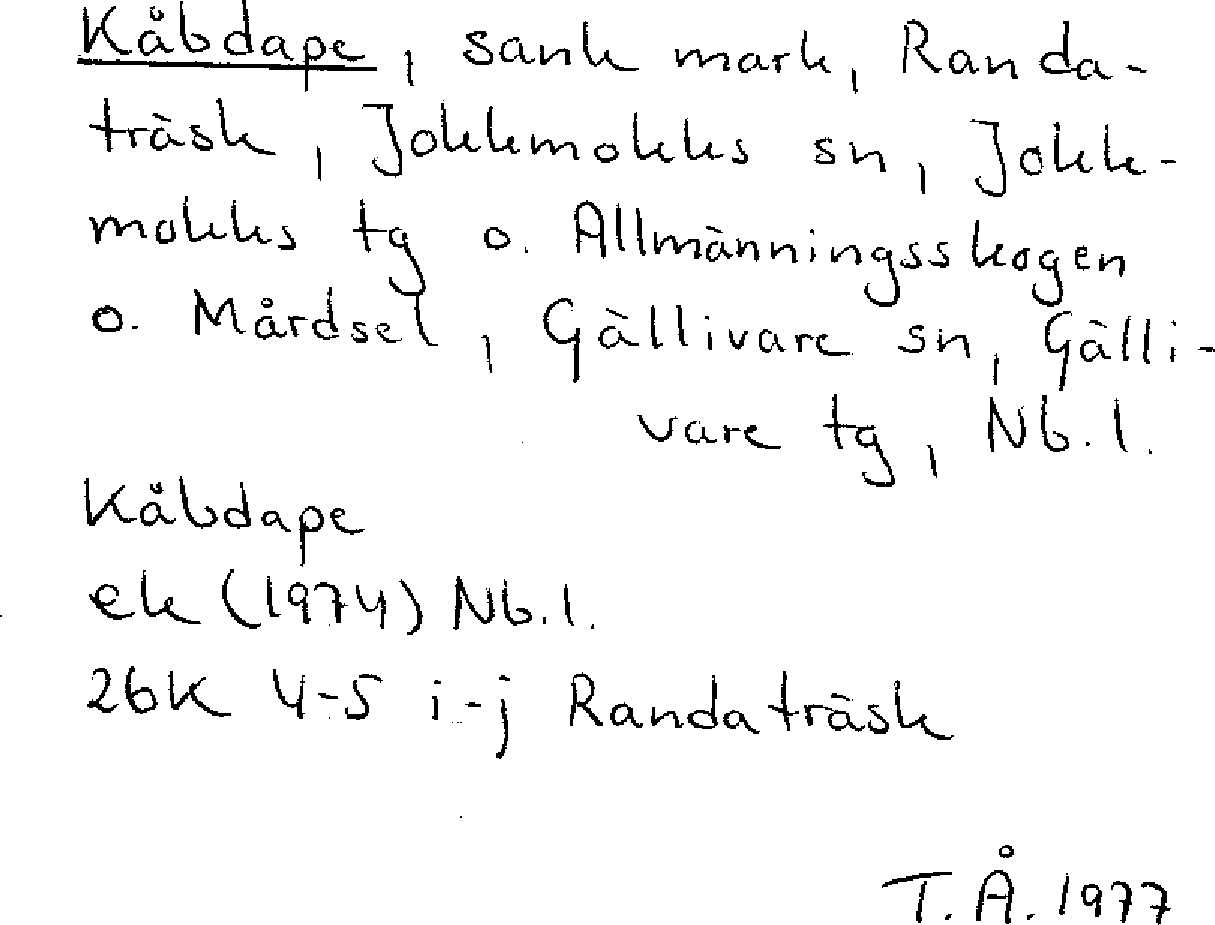 Kåbdape, sank mark, Randa-
träsk, Jokkmokks sn, Jokk-
mokks tg o. Allmänningsskogen
o. Mårdsel, Gällivare sn, Gälli-
vare tg, Nb. l.
Kåbdape
ek (1974) Nb. l.
26K 4-5 i-j Randaträsk
T. Å. 1977